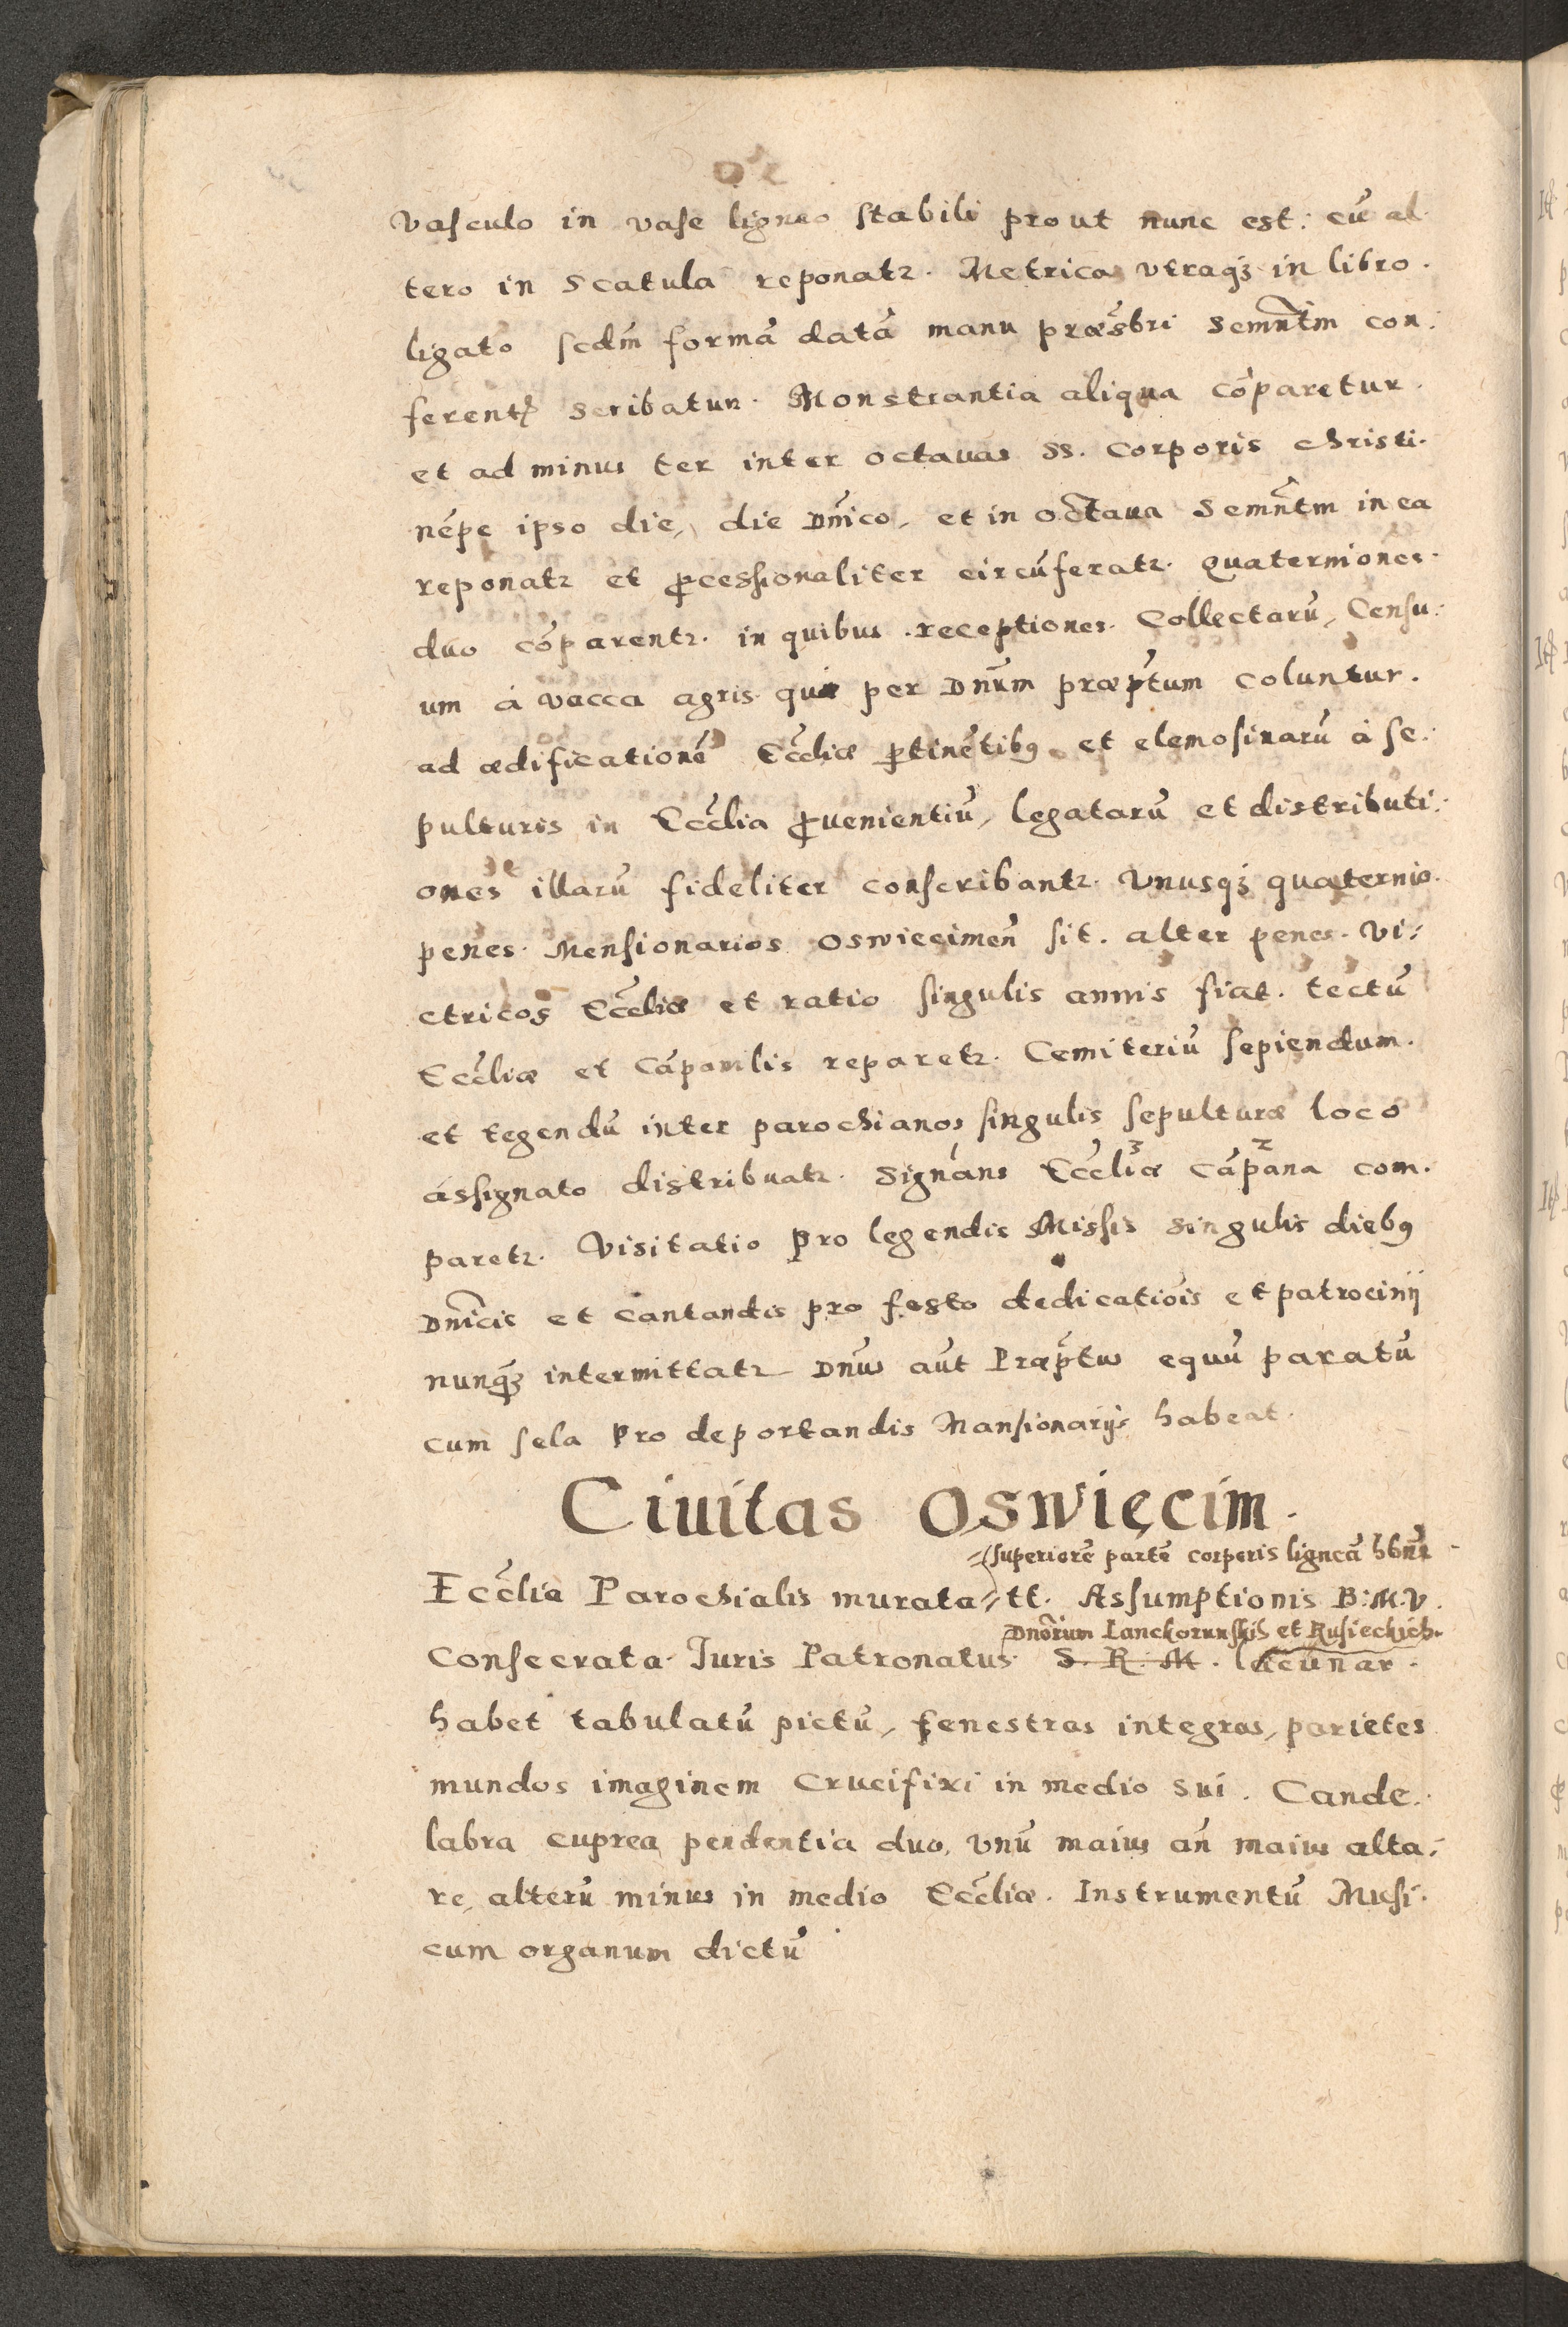 vasculo in vase ligneo stabili prout nunc est: cũ al-
tero in scatula reponatr. Metrica vtraqȝ in libro
ligato scdm̃ formã datã manu præsbri semñtm con:
ferentis scribatur. Monstrantia aliqua cõparetur
et ad minus ter inter octauas SS. Corporis Christi.
nẽpe ipso die, die Dñico, et in octaua semñtm in ea
reponatr et processionaliter circũferatr. Quaterniones
duo cõparentr. in quibus receptiones Collectarũ, Censu:
um à vacca agris qui per Dnũm præptum coluntur.
ad ædificationẽ Eccliæ ptinẽtibꝯ et elemosinarũ à se:
pulturis in Ecclia prouenientiũ, legatarũ et distributi:
ones illarũ fideliter conscribantr. Vnusqȝ quaternio
penes Mensionarios Oswiecimeñ sit. alter penes Vi:
ctricos Eccliæ et ratio singulis annis fiat. tectũ
Eccliæ et Cãpanilis reparetr. Cemiteriũ sepiendum.
et tegendũ inter parochianos singulis sepulturæ loco
assignato distribuatr. Signans Eccliæ 3 Cãpana 2 com.
paretr. Visitatio pro legendis Missis singulis diebꝯ
Dñicis et cantandis pro festo dedicatiois et patrocinij
nunqȝ intermittatr Dnũs aũt Præptus equũ paratũ
cum sela pro deportandis Mansionarijs habeat.
Ciuitas Oswięcim.
superiorẽ partẽ corporis ligneã hbñs
Ecclia Parochialis murata tt. Assumptionis B: M. V.
Dnõrum Lanckorunskich et Rusieckich.
Consecrata Iuris Patronatus S. R. M. lacunar
habet tabulatũ pictũ, fenestras integras, parietes
mundos imaginem Crucifixi in medio sui. Cande:
labra cuprea pendentia duo, vnũ maius añ maius alta:
re, alterũ minus in medio Eccliæ. Instrumentũ Musi:
cum organum dictũ